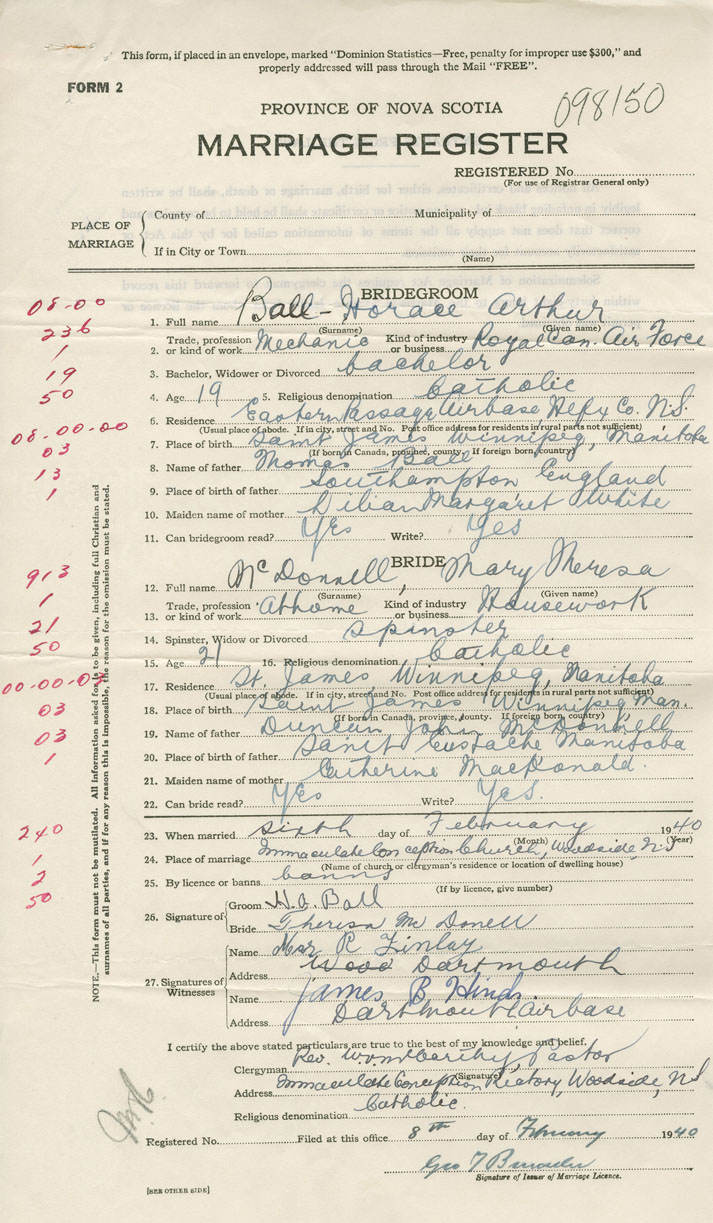 This form, if placed in an envelope, marked "Dominion Statistics—Free, penalty for improper use $300," and
properly addressed will pass through the Mail "FREE".
FORM 2
098150
PROVINCE OF NOVA SCOTIA
MARRIAGE REGISTER
REGISTERED No.
(For use of Registrar General only)
PLACE OF MARRIAGE
County of Municipality of
If in City or Town
(Name)
BRIDEGROOM
08-00
1. Full name Ball - Horace Arthur
(Surname) (Given name)
236
2. Trade, profession or kind of work Mechanic Kind of industry or business Royal Can. Air Force
1
3. Bachelor, Widower or Divorced bachelor
19
4. Age 19 5. Religious denomination Catholic
50
6. Residence Eastern Passage Airbase Hlfx Co. N.S.
(Usual place of abode. If in city, street and No. Post office address for residents in rural parts not sufficient)
08-00-00
7. Place of birth Saint James Winnipeg, Manitoba
(If born in Canada, province, county. If foreign born, country)
03
8. Name of father Thomas Ball
13
9. Place of birth of father Southampton England
1
10. Maiden name of mother Lilian Margaret White
11. Can bridegroom read? Yes Write? Yes
BRIDE
913
12. Full name McDonnell, Mary Theresa
(Surname) (Given name)
1
13. Trade, profession or kind of work At home Kind of industry or business Housework
21
14. Spinster, Widow or Divorced spinster
50
15. Age 21 16. Religious denomination Catholic
17. Residence St. James Winnipeg, Manitoba
(Usual place of abode. If in city, street and No. Post office address for residents in rural parts not sufficient)
03
18. Place of birth Saint James Winnipeg Man.
(If born in Canada, province, county. If foreign born, country)
03
19. Name of father Duncan John McDonnell
1
20. Place of birth of father Sanit Eustache Manitoba
21. Maiden name of mother Catherine MacDonald.
22. Can bride read? Yes Write? Yes.
240
23. When married sixth day of February 1940
(Month) (Year)
1
24. Place of marriage Immaculate Conception Church, Woodside, N.S
(Name of church or clergyman's residence or location of dwelling house)
2
25. By licence or banns banns
(If by licence, give number)
50
26. Signature of
Groom H.A. Ball
Bride Theresa McDonell
27. Signatures of Witnesses
Name R Finlay
Address Dartmouth
Name James B Hinds.
Address Dartmouth Airbase
I certify the above stated particulars are true to the best of my knowledge and belief.
Clergyman Rev. Pastor
(Signature)
Address Immaculate Conception Rectory, Woodside, N.S
Religious denomination Catholic.
Registered No. Filed at this office 8th day of February 1940
Geo T
Signature of Issuer of Marriage Licence.
[SEE OTHER SIDE]
NOTE.—This form must not be mutilated. All information asked for is to be given, including full Christian and
surnames of all parties, and if for any reason this is impossible, the reason for the omission must be stated.